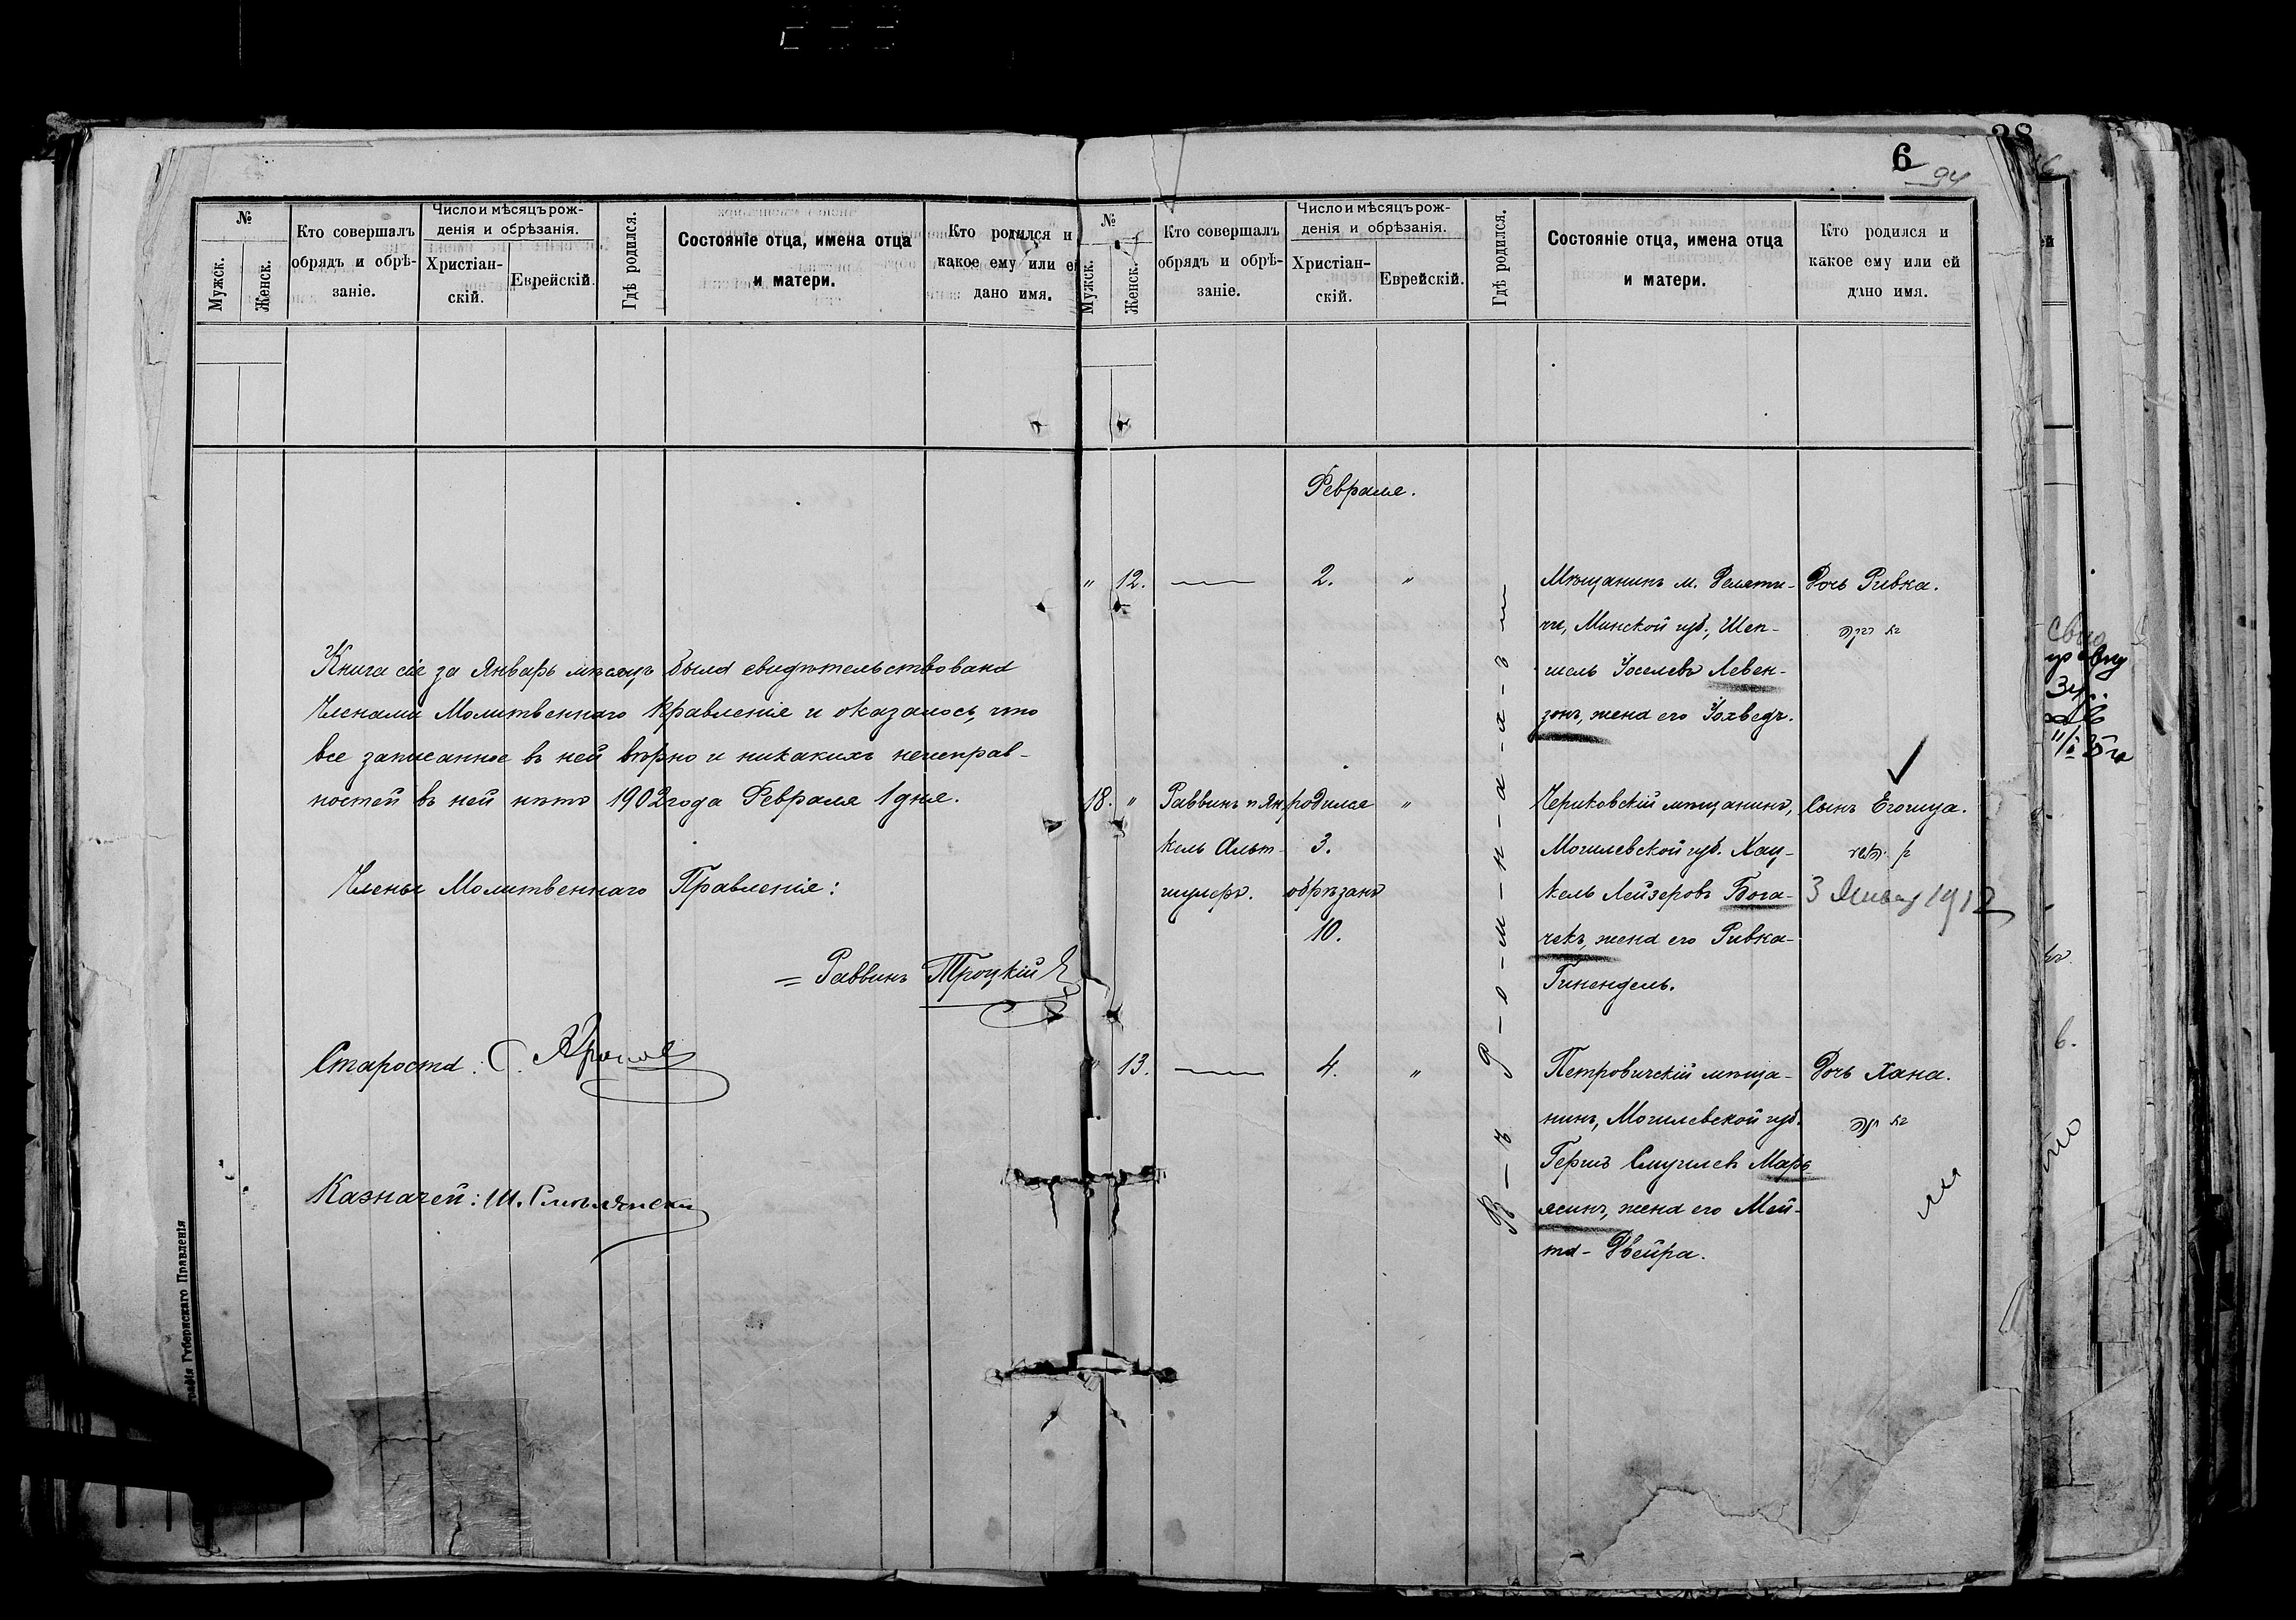 6
94
№
Мужск.
Женск.
Кто совершалъ
обрядъ и обрѣ-
заніе.
Число и мѣсяцъ рож-
денія и обрѣзанія.
Христіан-
скій.
Еврейскій.
Гдѣ родился.
Состояніе отца, имена отца
и матери.
Кто родился и
какое ему или ей
дано имя.
Книга сія за Январь мѣсяцъ была свидѣтельствована
Членами Молитвеннаго Правленія и оказалось, что
все записанное въ ней вѣрно и никакихъ неисправ-
ностей въ ней нѣтъ 1902 года Февраля 1 дня.
Члены Молитвеннаго Правленія:
= Раввинъ Троцкій
Староста: С.
Казначей: Ш.
Губернскаго Правленія
№
Мужск.
Женск.
Кто совершалъ
обрядъ и обрѣ-
заніе.
Число и мѣсяцъ рож-
денія и обрѣзанія.
Христіан-
скій.
Еврейскій.
Гдѣ родился.
Состояніе отца, имена отца
и матери.
Кто родился и
какое ему или ей
дано имя.
Февраля.
В-ъ Р-о-м-н-а-х-ъ
" 12. — 2. "
Мѣщанинъ м. Деляти-
чи, Минской губ., Шеп-
шель Іоселевъ Левен-
зонъ, жена его Іохведъ.
Дочь Ривка.
18. "
Раввинъ и Ян-
кель Альт-
шулеръ.
родился
3.
обрѣзанъ
10.
"
Чериковскій мѣщанинъ,
Могилевской губ. Хац-
кель Лейзеровъ Бога-
чекъ, жена его Ривка-
Гинендель.
Сынъ Егошуа.
3 Январ 1912
" 13. — 4. "
Петровичскій мѣща-
нинъ, Могилевской губ.
Гершъ Смуилевъ Марь
ясинъ, жена его Мей-
та-Двейра.
Дочь Хана.